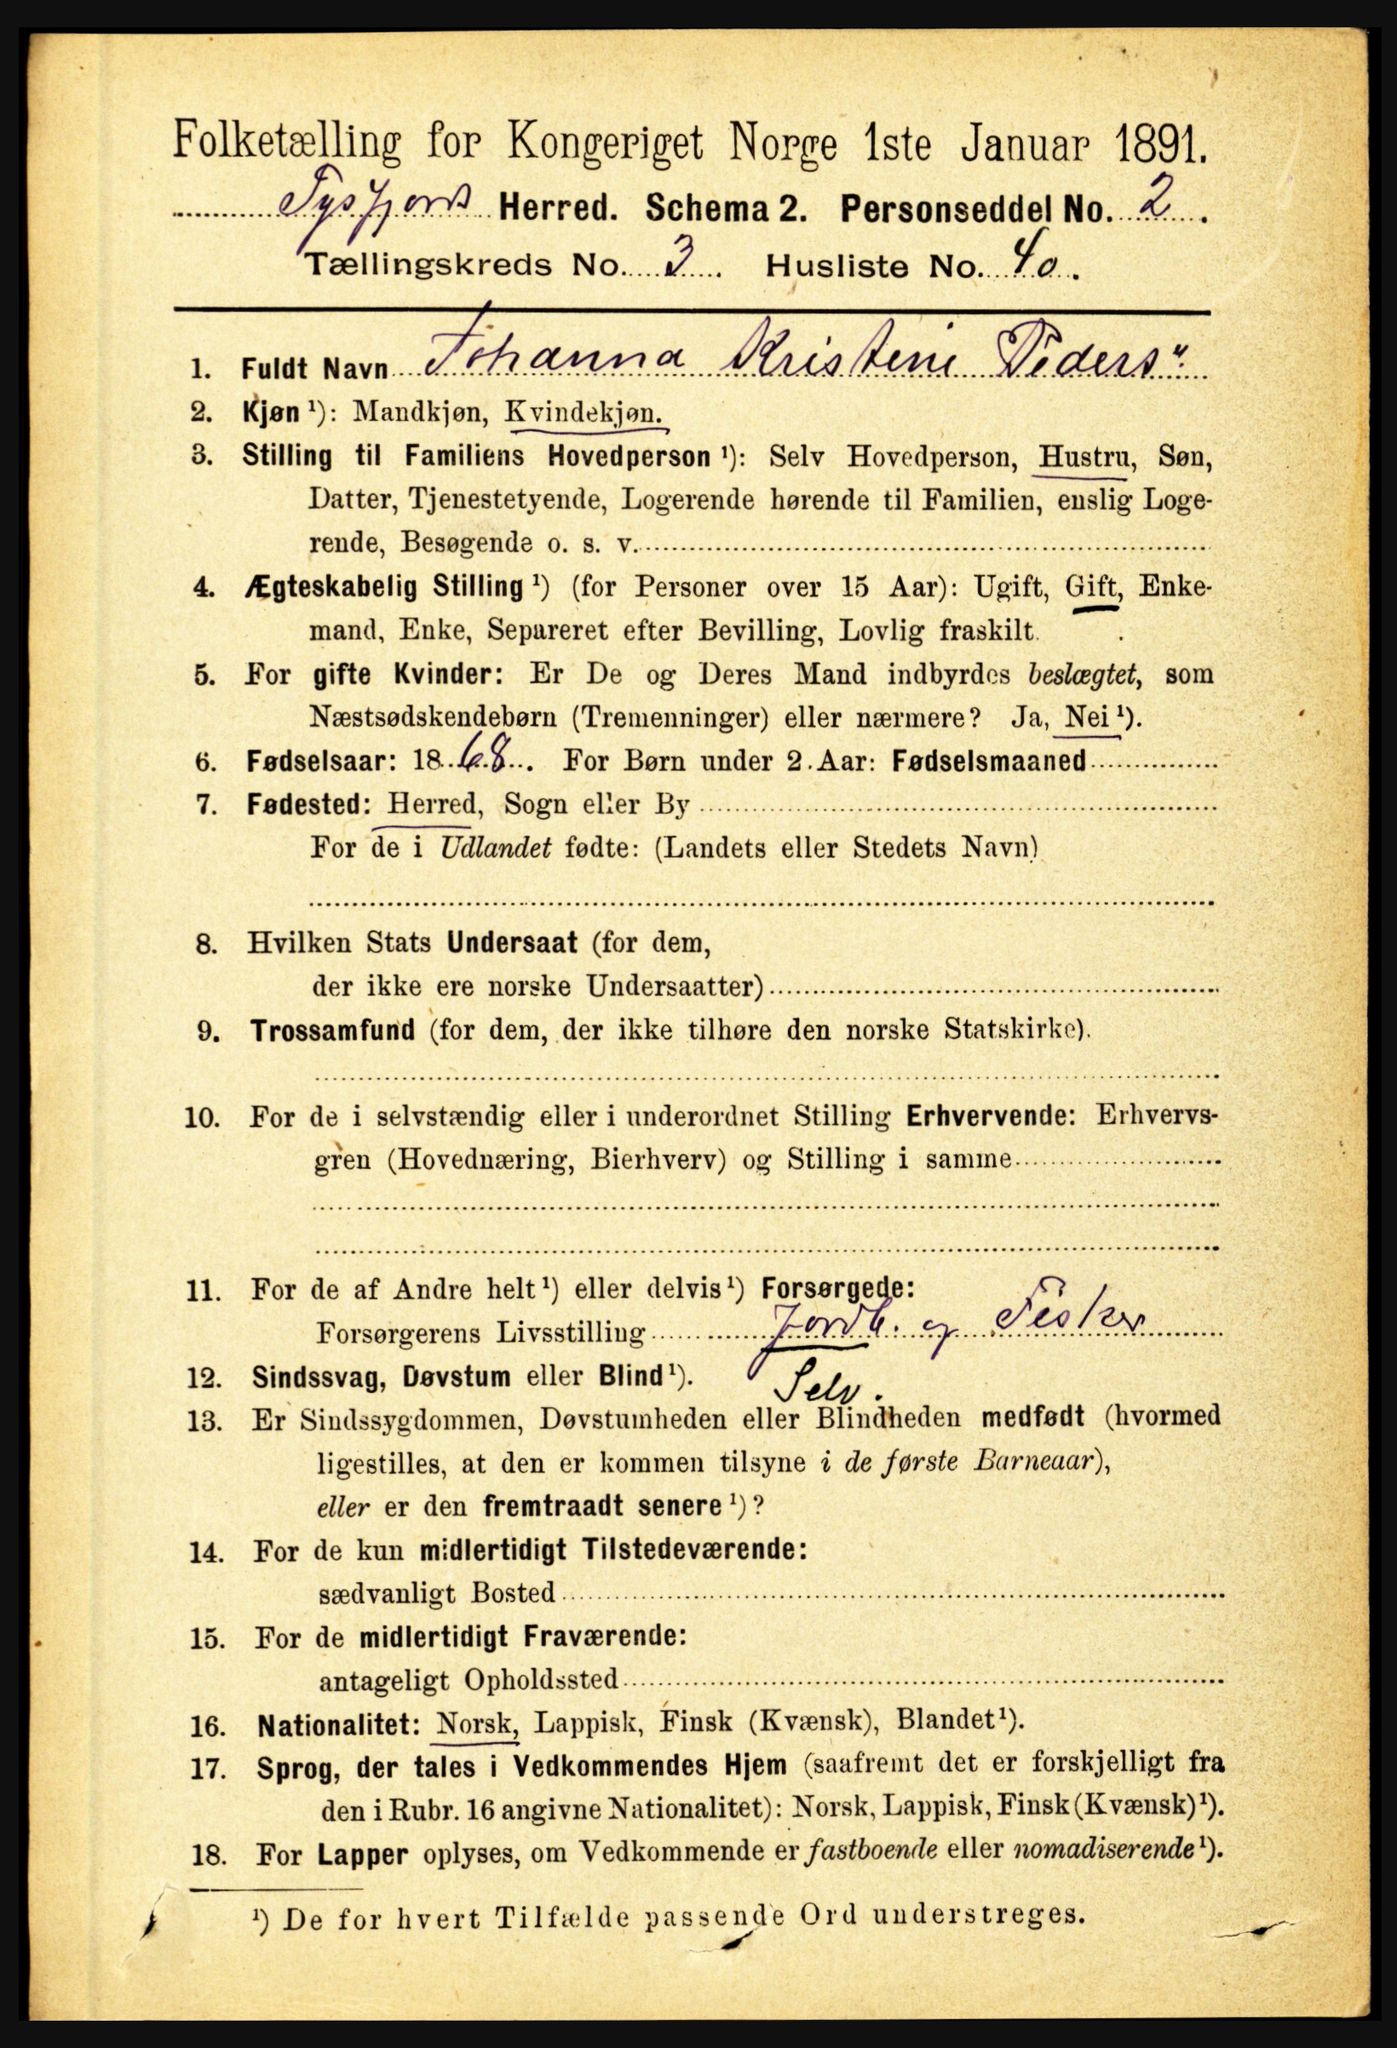 Folketælling for Kongeriget Norge 1ste Januar 1891.
Tysfjord Herred. Schema 2. Personseddel No. 2.
Tællingskreds No. 3. Husliste No. 40.
1. Fuldt Navn Johanna Kristine Peders"
2. Kjøn ¹): Mandkjøn, Kvindekjøn.
3. Stilling til Familiens Hovedperson ¹): Selv Hovedperson, Hustru, Søn,
Datter, Tjenestetyende, Logerende hørende til Familien, enslig Loge-
rende, Besøgende o. s. v.
4. Ægteskabelig Stilling ¹) (for Personer over 15 Aar): Ugift, Gift, Enke-
mand, Enke, Separeret efter Bevilling, Lovlig fraskilt.
5. For gifte Kvinder: Er De og Deres Mand indbyrdes beslægtet, som
Næstsødskendebørn (Tremenninger) eller nærmere? Ja, Nei ¹).
6. Fødselsaar: 1868. For Børn under 2 Aar: Fødselsmaaned
7. Fødested: Herred, Sogn eller By
For de i Udlandet fødte: (Landets eller Stedets Navn)
8. Hvilken Stats Undersaat (for dem,
der ikke ere norske Undersaatter)
9. Trossamfund (for dem, der ikke tilhøre den norske Statskirke).
10. For de i selvstændig eller i underordnet Stilling Erhvervende: Erhvervs-
gren (Hovednæring, Bierhverv) og Stilling i samme
11. For de af Andre helt ¹) eller delvis ¹) Forsørgede:
Forsørgerens Livsstilling Jordb. og Fisker
12. Sindssvag, Døvstum eller Blind ¹). Selv.
13. Er Sindssygdommen, Døvstumheden eller Blindheden medfødt (hvormed
ligestilles, at den er kommen tilsyne i de første Barneaar),
eller er den fremtraadt senere ¹)?
14. For de kun midlertidigt Tilstedeværende:
sædvanligt Bosted
15. For de midlertidigt Fraværende:
antageligt Opholdssted
16. Nationalitet: Norsk, Lappisk, Finsk (Kvænsk), Blandet ¹).
17. Sprog, der tales i Vedkommendes Hjem (saafremt det er forskjelligt fra
den i Rubr. 16 angivne Nationalitet): Norsk, Lappisk, Finsk (Kvænsk) ¹).
18. For Lapper oplyses, om Vedkommende er fastboende eller nomadiserende ¹).
¹) De for hvert Tilfælde passende Ord understreges.